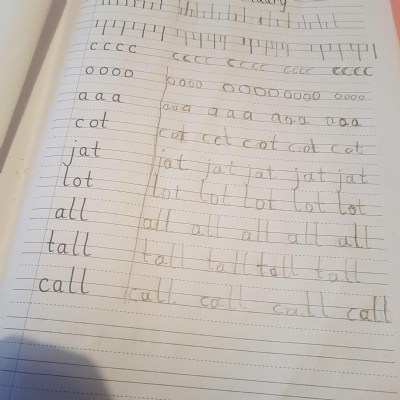 cccc cccc cccc cccc cccc
oooo oooo oooo oooo oooo
aaa aaa aaa aaa aaa
cot cot cot cot cot cot
jat jat jat jat jat jat
lot lot lot lot lot lot
all all all all all all
tall tall tall tall tall
call call call call call